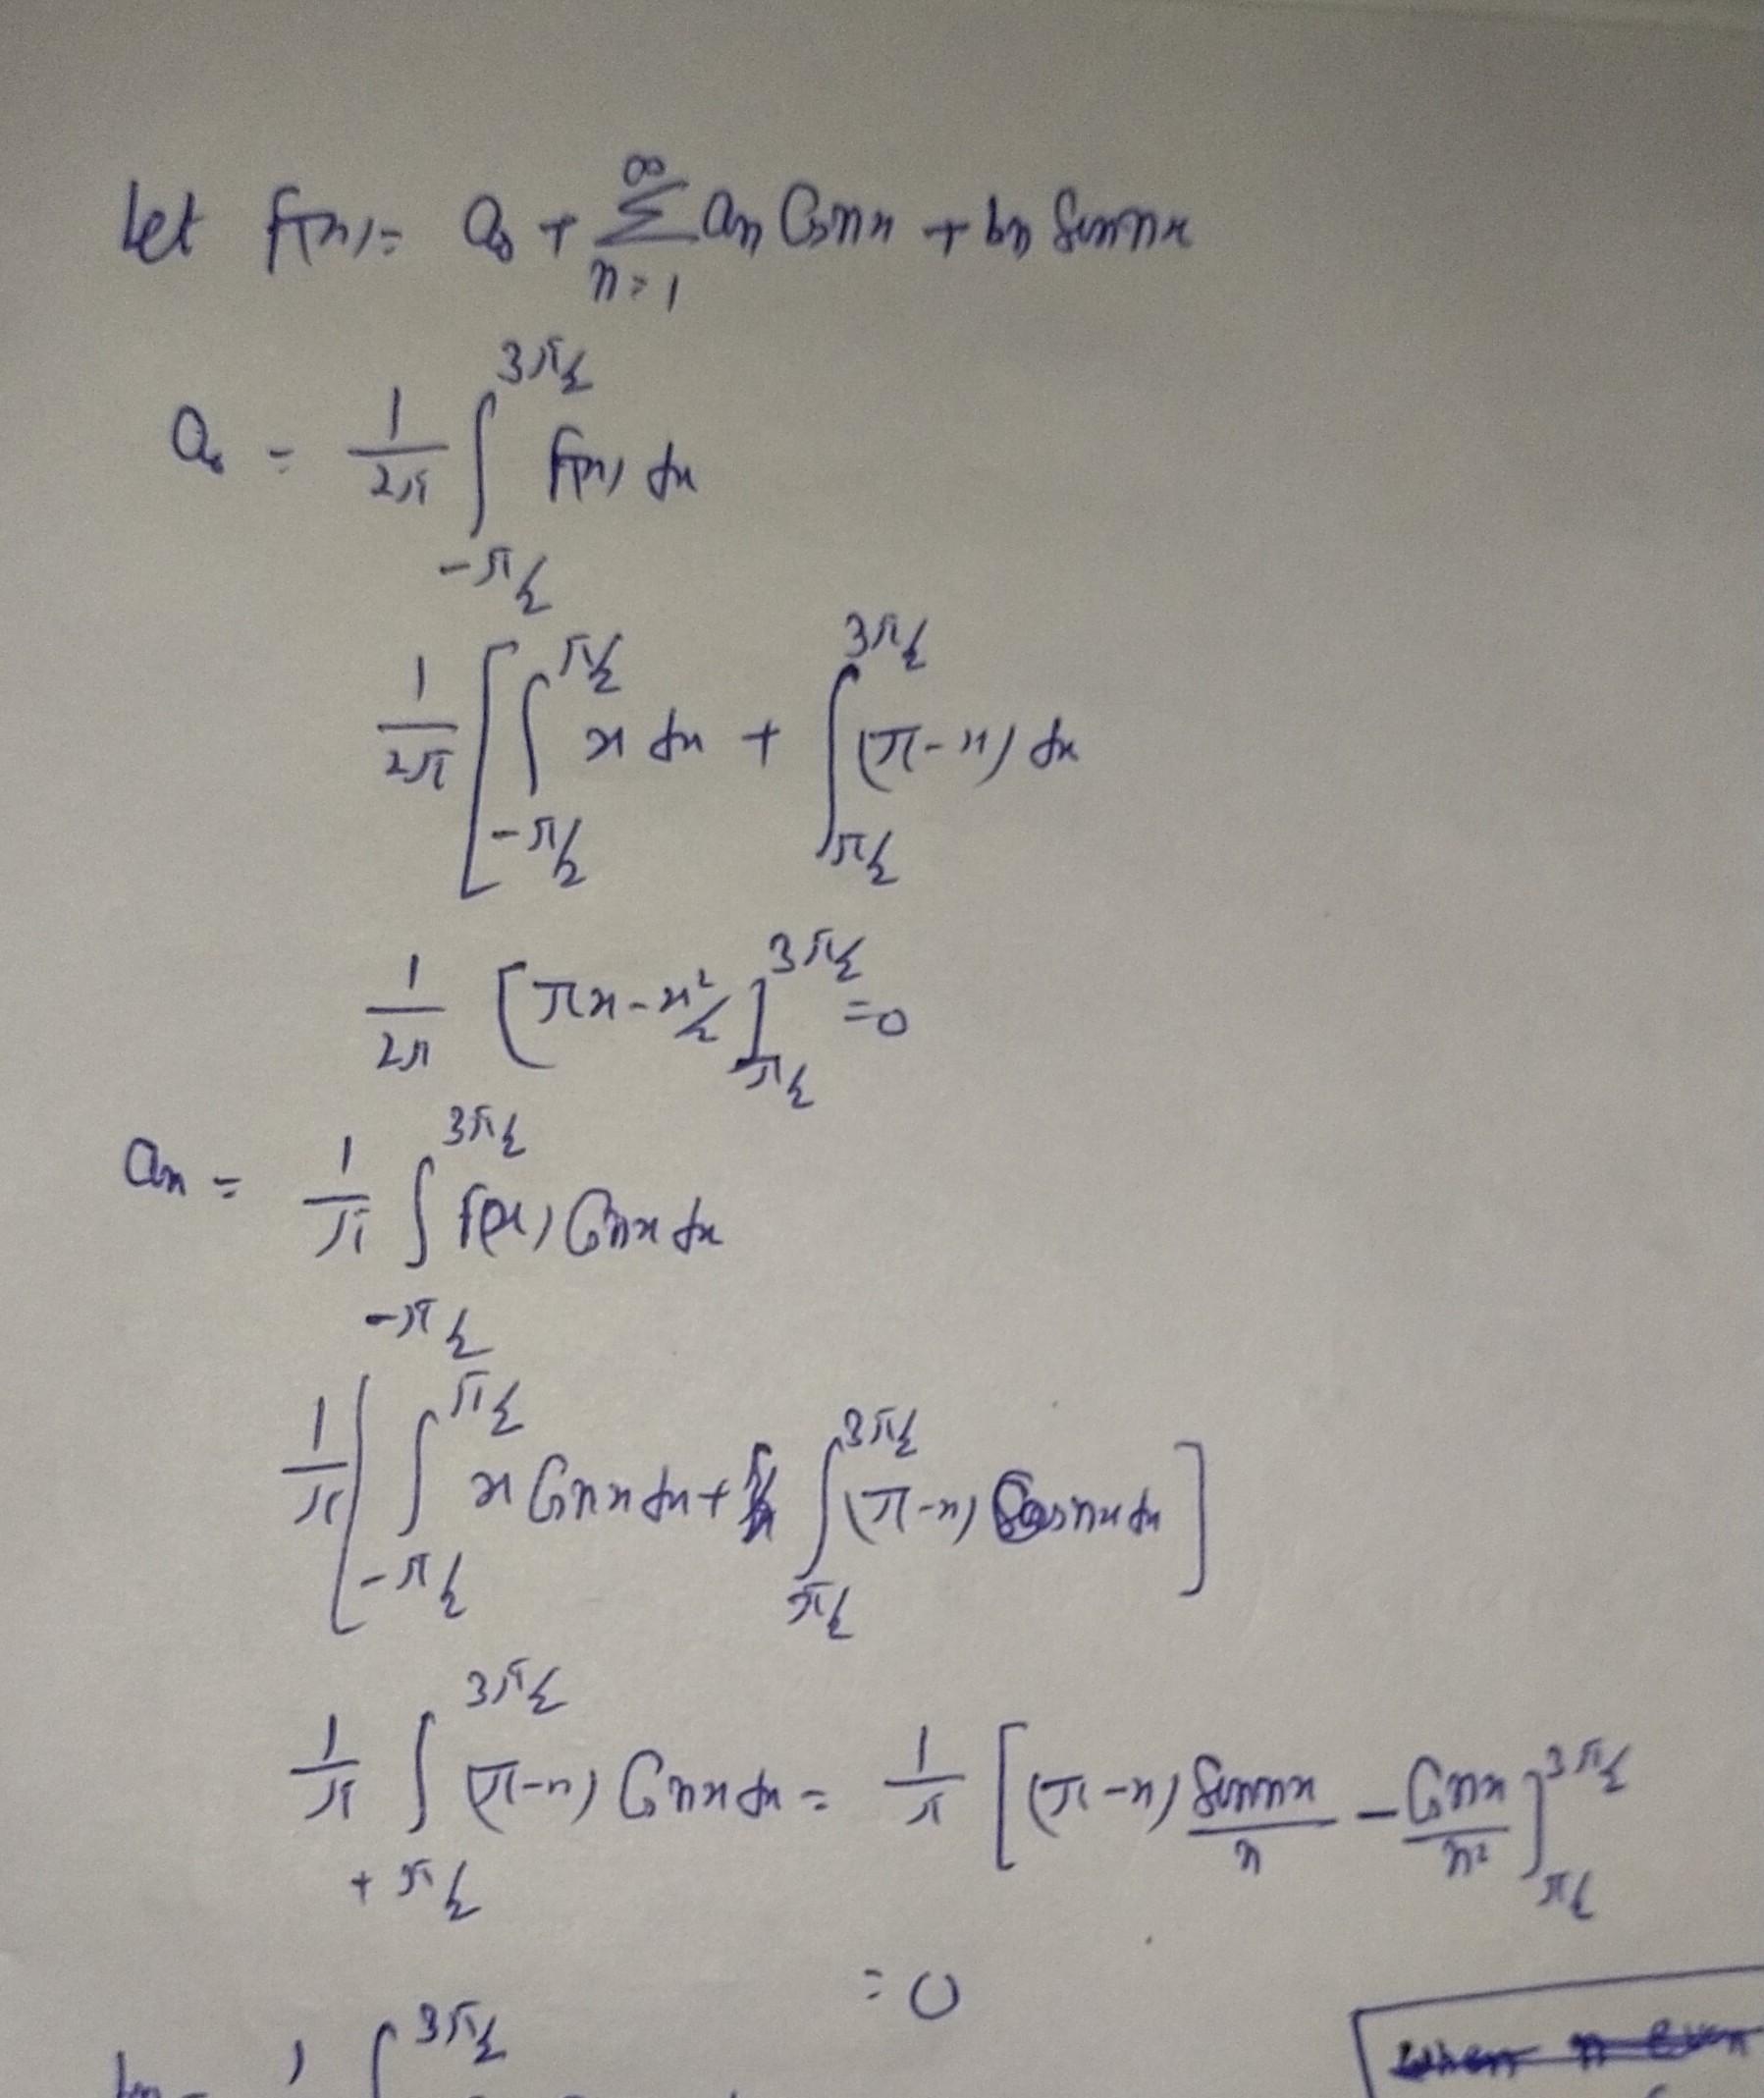 Let f(x) = a₀ + ∑_{n=1}^{∞} aₙ Cos nx + bₙ Sin nx
a₀ = 1/2π ∫_{-π/2}^{3π/2} f(x) dx
1/2π [ ∫_{-π/2}^{π/2} x dx + ∫_{π/2}^{3π/2} (π-x) dx
1/2π [ πx - x²/2 ]_{π/2}^{3π/2} = 0
aₙ = 1/π ∫_{-π/2}^{3π/2} f(x) Cos nx dx
1/π [ ∫_{-π/2}^{π/2} x Cos nx dx + ∫_{π/2}^{3π/2} (π-x) Cos nx dx ]
1/π ∫_{+π/2}^{3π/2} (π-x) Cos nx dx = 1/π [ (π-x) Sin nx/n - Cos nx/n² ]_{π/2}^{3π/2}
= 0
bₙ = 1 ∫^{3π/2}
when n even